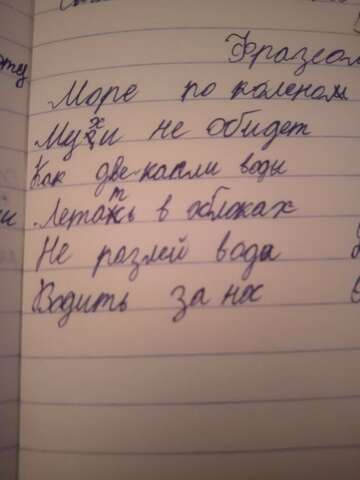 Фразеол
Море по коленом
Мухи не обидет
Как две капли воды
Летать в облаках
Не разлей вода
Водить за нос